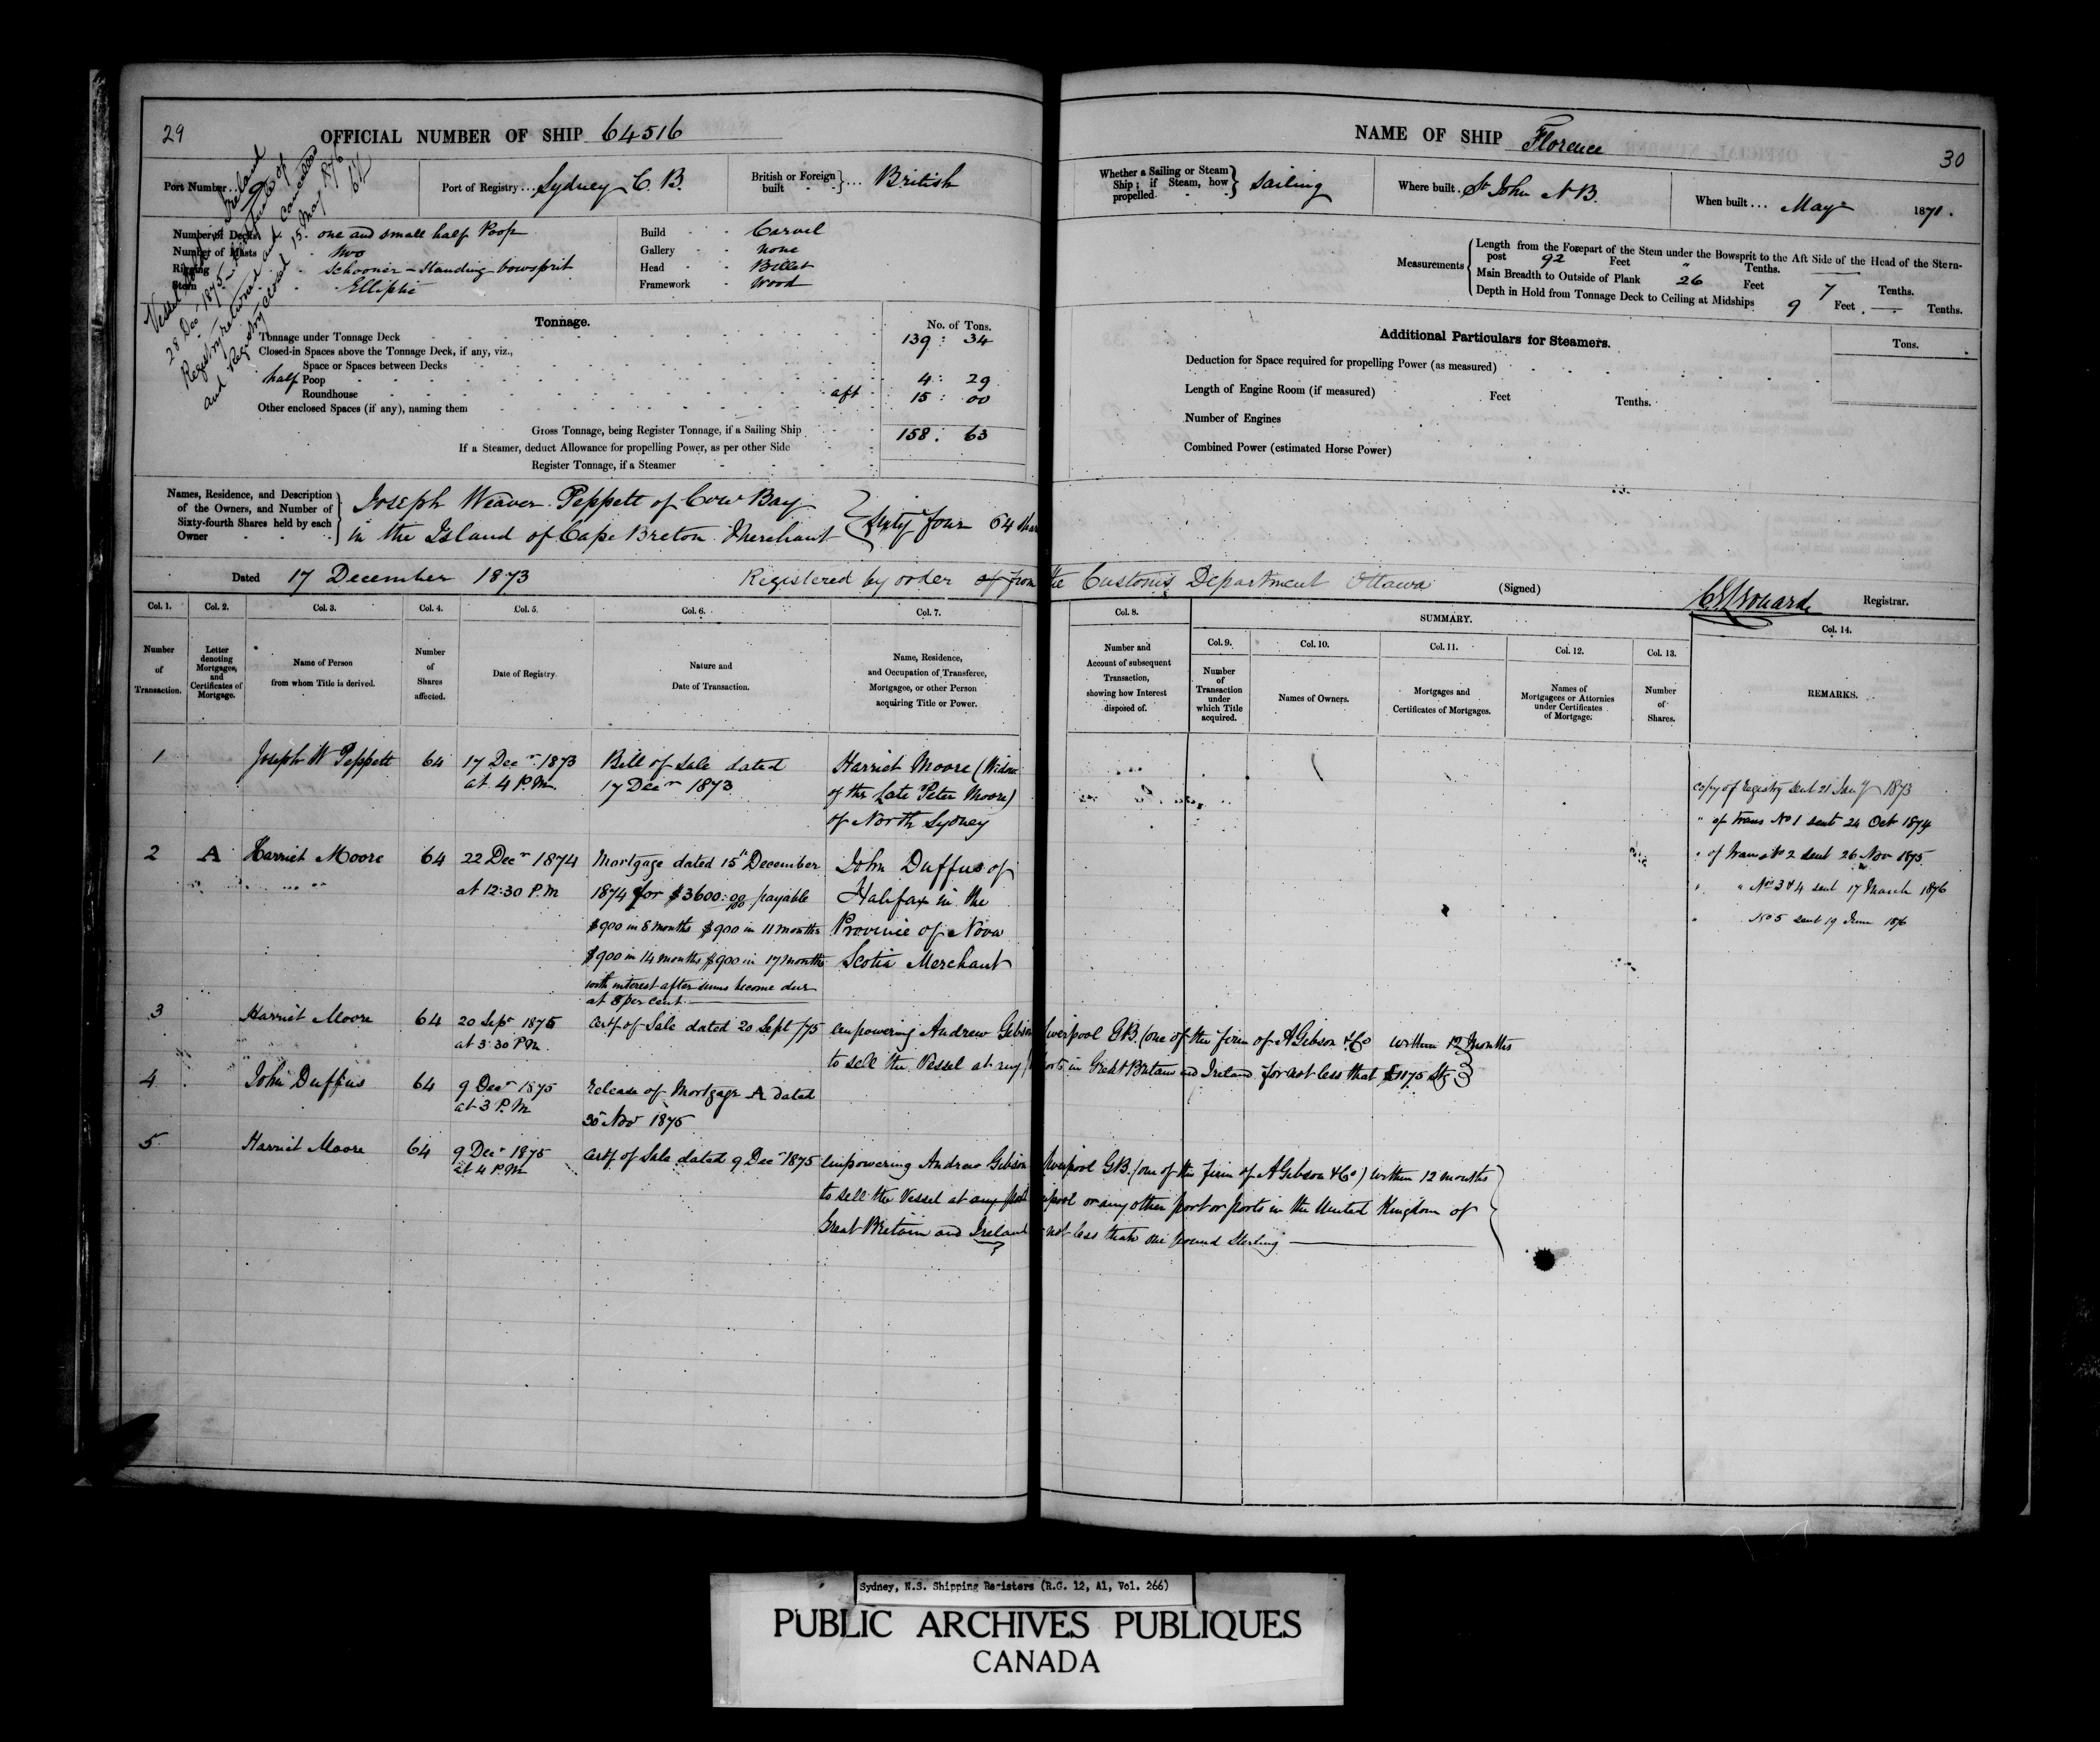 29
OFFICIAL NUMBER OF SHIP 64516
Port Number... 9
Port of Registry... Sydney C. B.
British or Foreign built ... British
Number of Decks one and small half Poop
Number of Masts Two
Rigging Schooner - Standing bowsprit
Stern Elliptic
Build Carvel
Gallery none
Head Billet
Framework Wood
Vessel Ireland
28 Dec 1875 - Certificate of
Registry returned and Cancelled
and Registry closed 15 May 1876
Tonnage.
No. of Tons.
Tonnage under Tonnage Deck 139 : 34
Closed-in Spaces above the Tonnage Deck, if any, viz.,
Space or Spaces between Decks
half Poop 4 : 29
Roundhouse aft 15 : 00
Other enclosed Spaces (if any), naming them
Gross Tonnage, being Register Tonnage, if a Sailing Ship 158 : 63
If a Steamer, deduct Allowance for propelling Power, as per other Side
Register Tonnage, if a Steamer
Names, Residence, and Description of the Owners, and Number of Sixty-fourth Shares held by each Owner
Joseph Weaver Peppett of Cow Bay
in the Island of Cape Breton Merchant
Sixty four 64 shar
Dated 17 December 1873
Registered by order of from the Customs Department Ottawa
NAME OF SHIP Florence
30
Whether a Sailing or Steam Ship; if Steam, how propelled. Sailing
Where built. St John N B.
When built... May 1871.
Measurements
Length from the Forepart of the Stem under the Bowsprit to the Aft Side of the Head of the Stern-
post 92 Feet " Tenths.
Main Breadth to Outside of Plank 26 Feet 7 Tenths.
Depth in Hold from Tonnage Deck to Ceiling at Midships 9 Feet. — Tenths.
Additional Particulars for Steamers.
Tons.
Deduction for Space required for propelling Power (as measured)
Length of Engine Room (if measured) Feet Tenths.
Number of Engines
Combined Power (estimated Horse Power)
(Signed)
Registrar.
Col. 1.
Number of Transaction.
Col. 2.
Letter denoting Mortgages, and Certificates of Mortgage.
Col. 3.
Name of Person from whom Title is derived.
Col. 4.
Number of Shares affected.
Col. 5.
Date of Registry
Col. 6.
Nature and Date of Transaction.
Col. 7.
Name, Residence, and Occupation of Transferee, Mortgagee, or other Person acquiring Title or Power.
Col. 8.
Number and Account of subsequent Transaction, showing how Interest disposed of.
SUMMARY.
Col. 9.
Number of Transaction under which Title acquired.
Col. 10.
Names of Owners.
Col. 11.
Mortgages and Certificates of Mortgages.
Col. 12.
Names of Mortgagees or Attornies under Certificates of Mortgage.
Col. 13.
Number of Shares.
Col. 14.
REMARKS.
1 Joseph W Peppett 64 17 Decr 1873 Bill of Sale dated Harriet Moore (Widow
at 4 P.M. 17 Decr 1873 of the Late Peter Moore)
of North Sydney
2 A Harriet Moore 64 22 Decr 1874 Mortgage dated 15th December John Duffus of
at 12:30 P.M 1874 for $3600:00 payable Halifax in the
$900 in 8 months $900 in 11 months Province of Nova
$900 in 14 months $900 in 17 months Scotia Merchant
with interest after sums become due
at 8 per cent
3 Harriet Moore 64 20 Sepr 1875 Certf of Sale dated 20 Sept /75 empowering Andrew Gibson Liverpool GB. (one of the firm of A Gibson & Co within 12 Months
at 3:30 P.M to sell the Vessel at any Ports in Great Britain and Ireland for not less that £1175 Stg
4 John Duffus 64 9 Decr 1875 Release of Mortgage A dated
at 3 P.M 30 Nov 1875
5 Harriet Moore 64 9 Decr 1875 Certf of Sale dated 9 Decr 1875 empowering Andrew Gibson Liverpool GB. (one of the firm of A Gibson & Co) within 12 months
at 4 P.M to sell the Vessel at any port pool or any other port or ports in the United Kingdom of
Great Britain and Ireland not less than one pound Sterling
copy of registry sent 21 Jany 1873
" of trans No 1 sent 24 Oct 1874
" of trans No 2 sent 26 Nov 1875
" " Nos 3 & 4 sent 17 March 1876
" No 5 sent 19 June 1876
Sydney, N.S. Shipping Registers (R.G. 12, A1, Vol. 266)
PUBLIC ARCHIVES PUBLIQUES
CANADA